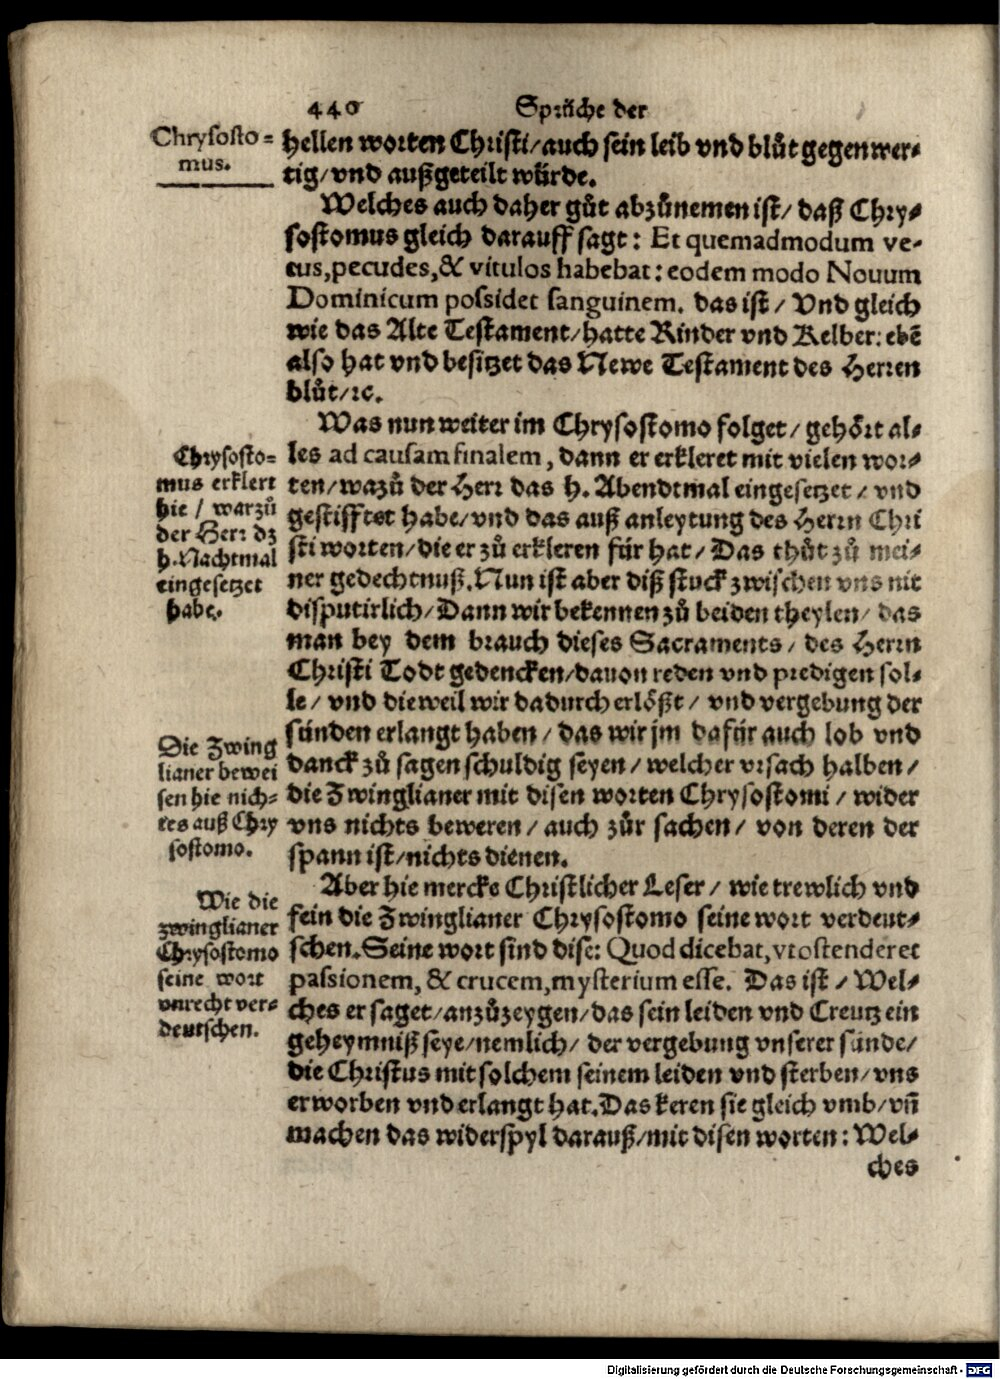 440 Sprüche der
Chrysosto=
mus.
hellen worten Christi/ auch sein leib vnd blůt gegenwer-
tig/ vnd außgeteilt würde.
Welches auch daher gůt abzůnemen ist/ daß Chry-
sostomus gleich darauff sagt: Et quemadmodum ve-
tus, pecudes, & vitulos habebat: eodem modo Nouum
Dominicum possidet sanguinem. das ist/ Vnd gleich
wie das Alte Testament/ hatte Rinder vnd Kelber: ebē
also hat vnd besitzet das Newe Testament des Herren
blůt/ ꝛc.
Was nun weiter im Chrysostomo folget/ gehört al-
les ad causam finalem, dann er erkleret mit vielen wor-
ten/ wazů der Herr das h. Abendtmal eingesetzet/ vnd
gestifftet habe/ vnd das auß anleytung des Herrn Chri
sti worten/ die er zů erkleren für hat/ Das thůt zů mei-
ner gedechtnuß. Nun ist aber diß stuck zwischen vns nit
disputirlich/ Dann wir bekennen zů beiden theylen/ das
man bey dem brauch dieses Sacraments/ des Herrn
Christi Todt gedencken/ dauon reden vnd predigen sol-
le/ vnd dieweil wir dadurch erlößt/ vnd vergebung der
sünden erlangt haben/ das wir jm dafür auch lob vnd
danck zů sagen schuldig seyen/ welcher vrsach halben/
die Zwinglianer mit disen worten Chrysostomi/ wider
vns nichts beweren/ auch zůr sachen/ von deren der
spann ist/ nichts dienen.
Chrysosto=
mus erklert
hie/ warzů
der Herr dz
h. Nachtmal
eingesetzet
habe.
Die Zwing
lianer bewei
sen hie nich=
tes auß Chry
sostomo.
Aber hie mercke Christlicher Leser/ wie trewlich vnd
fein die Zwinglianer Chrysostomo seine wort verdeut-
schen. Seine wort sind dise: Quod dicebat, vt ostenderet
passionem, & crucem, mysterium esse. Das ist/ Wel-
ches er saget/ anzůzeygen/ das sein leiden vnd Creutz ein
geheymniß seye/ nemlich/ der vergebung vnserer sünde/
die Christus mit solchem seinem leiden vnd sterben/ vns
erworben vnd erlangt hat. Das keren sie gleich vmb/ vñ
machen das widerspyl darauß/ mit disen worten: Wel-
ches
Wie die
zwinglianer
Chrysostomo
seine wort
vnrecht ver=
deutschen.
Digitalisierung gefördert durch die Deutsche Forschungsgemeinschaft - DFG